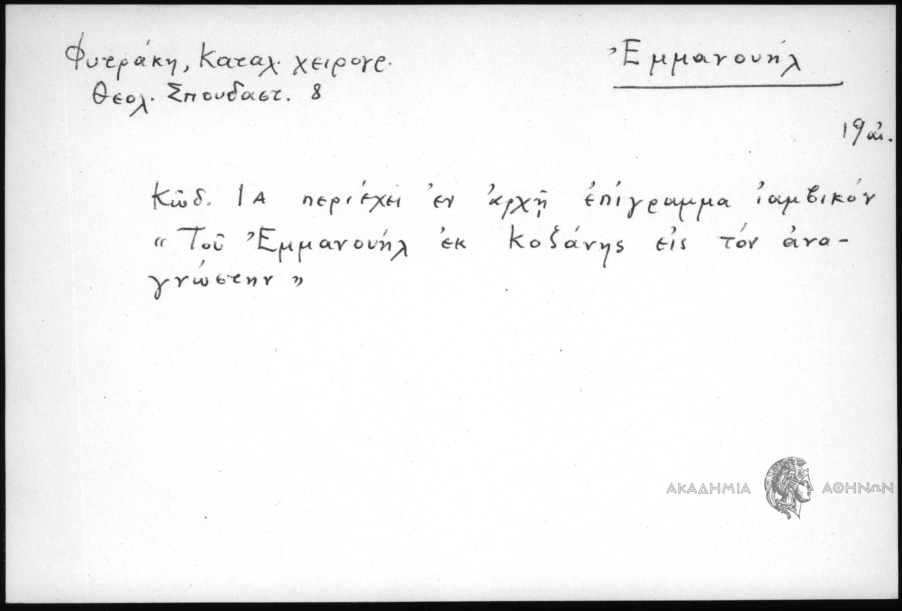 Φυτράκη, Καταλ. χειρογρ.
Θεολ. Σπουδαστ. 8
Ἐμμανουήλ
19 αἰ.
Κῶδ. ΙΑ περιέχει ἐν ἀρχῇ ἐπίγραμμα ἰαμβικόν
“ Τοῦ Ἐμμανουήλ ἐκ Κοζάνης εἰς τόν ἀνα-
γνώστην ”
ΑΚΑΔΗΜΙΑ ΑΘΗΝΩΝ